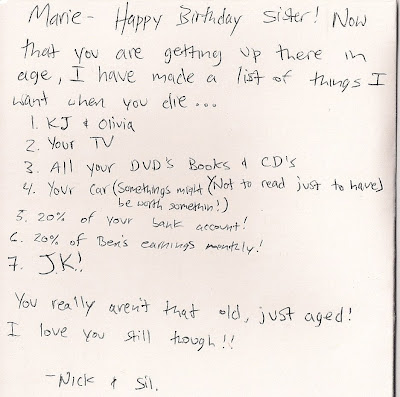 Marie - Happy Birthday Sister! Now
that you are getting up there in
age, I have made a list of things I
want when you die...
1. KJ & Olivia
2. Your TV
3. All your DVD's Books & CD's
4. Your Car (Somethings might (Not to read just to have)
be worth somethin!)
5. 20% of your bank account!
6. 20% of Ben's earnings monthly!
7. J.K.!
You really aren't that old, just aged!
I love you still though!!
- Nick & Sil.